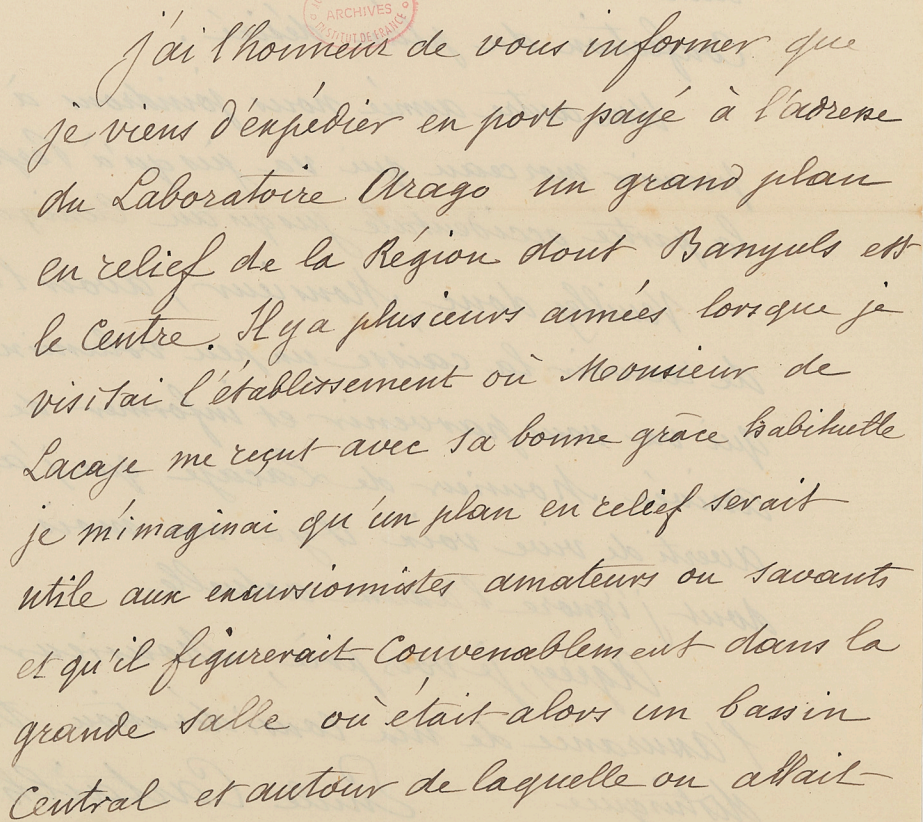 ARCHIVES
INSTITUT DE FRANCE
j'ai l'honneur de vous informer que
je viens d'expédier en port payé à l'adresse
du Laboratoire Arago un grand plan
en relief de la Région dont Banyuls est
le Centre. Il y a plusieurs années lorsque je
visitai l'établissement où Monsieur de
Lacaze me reçut avec sa bonne grâce habituelle
je m'imaginai qu'un plan en relief serait
utile aux excursionnistes amateurs ou savants
et qu'il figurerait Convenablement dans la
grande salle où était alors un bassin
Central et autour de laquelle on allait